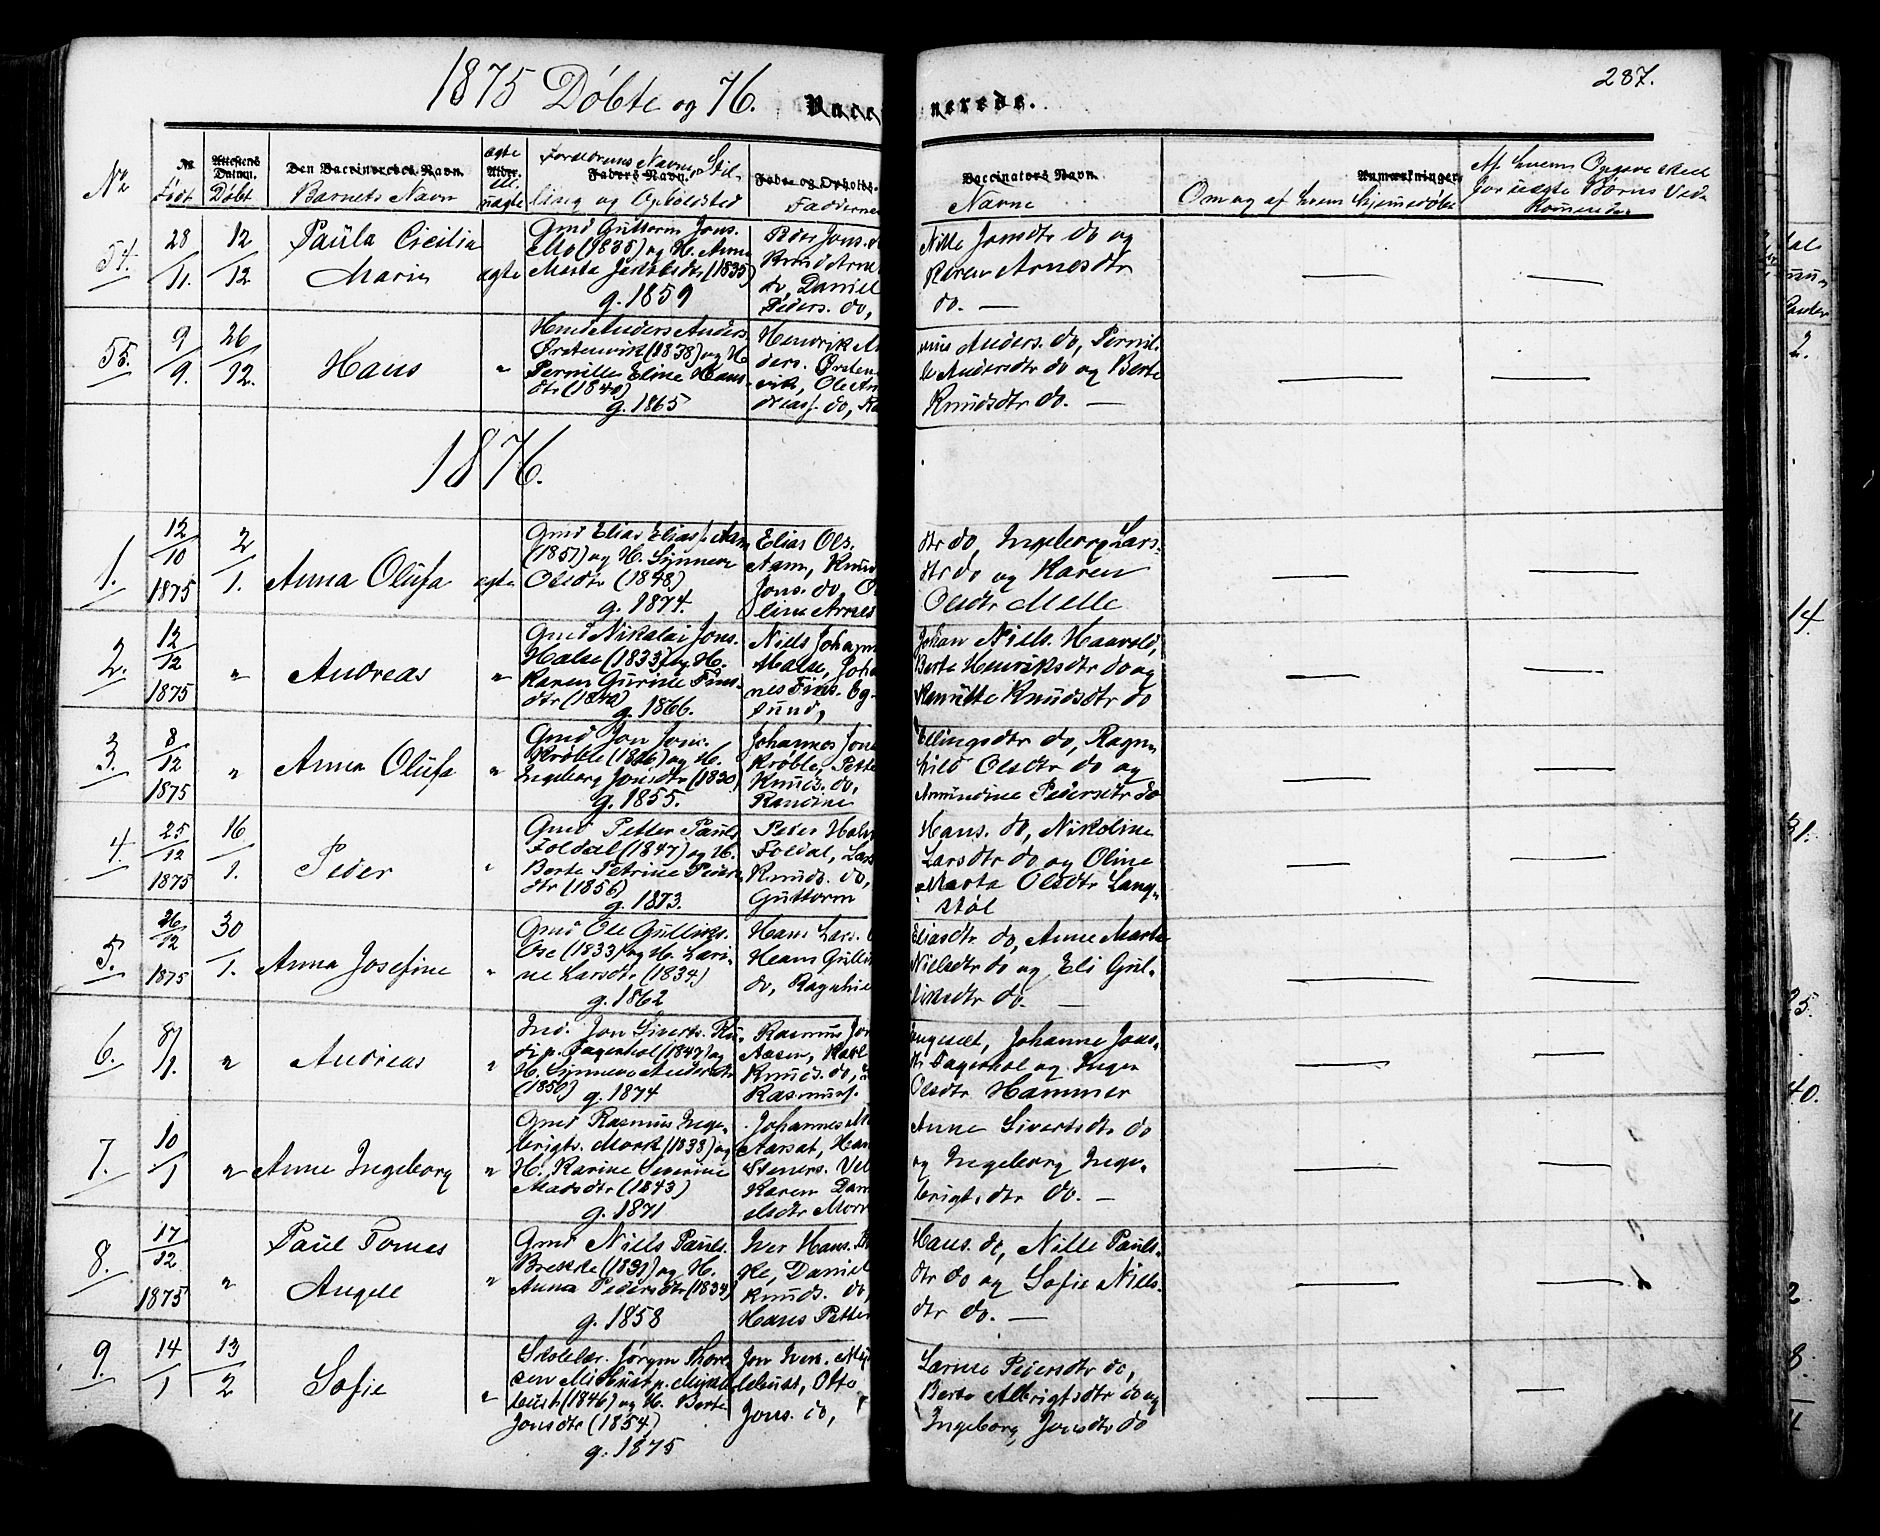 287.
1875 Döbte og 76. Vacci nerede.
No
No.
Født
Attestens Datum.
Døbt
Den Vaccineredes Navn.
Barnets Navn
ægte
Alder.
uægte
Forældrenes Navne, Stil-
Faders Navn.
ling og Opholdsted
Faddernes
Vaccinators Navn.
Navne
Anmærkninger.
Om og af hvem hjemmedøbt
Af hvem Opgave sked
for uægte Børns Ved-
kommende.
54. 28/11. 12/12 Paula Cicilia Marie ægte
Gmd Guttorm Jons.
Mo (1838) og H. Anne
Marta Jakobsdtr (1835)
g. 1859
Peder Jons. do
Knud Arne
do, Daniel
Peders. do,
Nille Jonsdtr do og
Karen Arnesdtr
do. —
55. 9/9. 26/12. Hans "
Hmd Anders Anders.
Ørstenvik (1838) og H.
Pernille Eline Hans-
dtr (1840)
g. 1865
Henrik An
ders. Ørsten-
vik, Ole An
dreass. do,
Anders. do, Pernil-
le Andersdtr do og Berte
Knudsdtr do. —
1876.
1. 12/10 1875 2/1. Anna Olufa ægte
Gmd Elias Eliass. Aam
(1851) og H. Synneve
Olsdtr (1848)
g. 1874.
Elias Ols.
Aam, Knud
Jons. do, O
line Arnes
dtr do, Ingeborg Lars-
dtr do og Karen
Olsdtr Melle
2. 12/12 1875 " Andreas "
Gmd Nikolai Jons.
Halse (1833) og H.
Karen Gurine Fins-
dtr (1840)
g. 1866.
Niels Johann
Halse, Johan
nes Fins. Eg-
sund,
Johan Niels. Haavold,
Berte Henriksdtr do og
Hanutte Knudsdtr do
3. 8/12 1875 " Anna Olufa "
Gmd Jon Jons.
Krøble (1826) og H.
Ingeborg Jonsdtr (1830)
g. 1855.
Johannes Jons
Krøble, Pette
Knuds. do,
Randine
Ellingsdtr do, Ragn-
hild Olsdtr do og
Amundine Pedersdtr do
4. 25/12 1875 16/1. Peder "
Gmd Petter Pauls.
Foldal (1847) og H.
Berte Petrine Peders-
dtr (1856)
g. 1873.
Peder Halv
Foldal, Lars
Knuds. do,
Guttorm
Hans. do, Nikoline
Larsdtr do og Oline
Marta Olsdtr Lang-
støl
5. 26/12 1875 30/1. Anna Josefine "
Gmd Ole Gulliks.
Ose (1833) og H. Lari-
ne Larsdtr (1834)
g. 1862
Hans Lars.
Hans Gulli
do, Ragnhil
Eliasdtr do, Anne Marte
Nielsdtr do og Eli Gul-
liksdtr do. —
6. 8/1. " Andreas "
Ind. Jon Siverts. Ru-
di p. Fagerhol (1847) og
H. Synneve Andersdtr
(1850) g. 1874
Rasmus Jon
Aasen, Karl
Knuds. do,
Rasmuss.
Johanne Jons-
dtr Fagerhol og Inger
Olsdtr Hammer
7. 10/1 " Anne Ingeborg "
Gmd Rasmus Inge-
brigts. Mork (1838) og
H. Karine Severine
Madsdtr (1843)
g. 1871
Johannes M
Aarsæt, Han
Steners. Vel
Karen Dani
elsdtr Mork
Anne Sivertsdtr do
og Ingeborg Inge-
brigtsdtr do. —
8. 17/12. 1875 " Paul Tomas Angell "
Gmd Niels Pauls.
Brekke (1831) og H.
Anna Pedersdtr (1834)
g. 1858
Iver Hans. Br
ke, Daniel
Knuds. do,
Hans Petter
Hans. do, Nille Pauls-
dtr do og Sofie Niels-
dtr do. —
9. 14/1 13/2 Sofie "
Skolelær. Jørgen Thor-
sen
bust (1846) og H. Berte
Jonsdtr (1854)
g. 1875
Jon Ivers. Myk
lebust, Otto
Jons. do,
Larine Pedersdtr do,
Berte Albrigtsdtr do og
Ingeborg Jonsdtr do
2.
14.
31.
25.
40.
2
8.